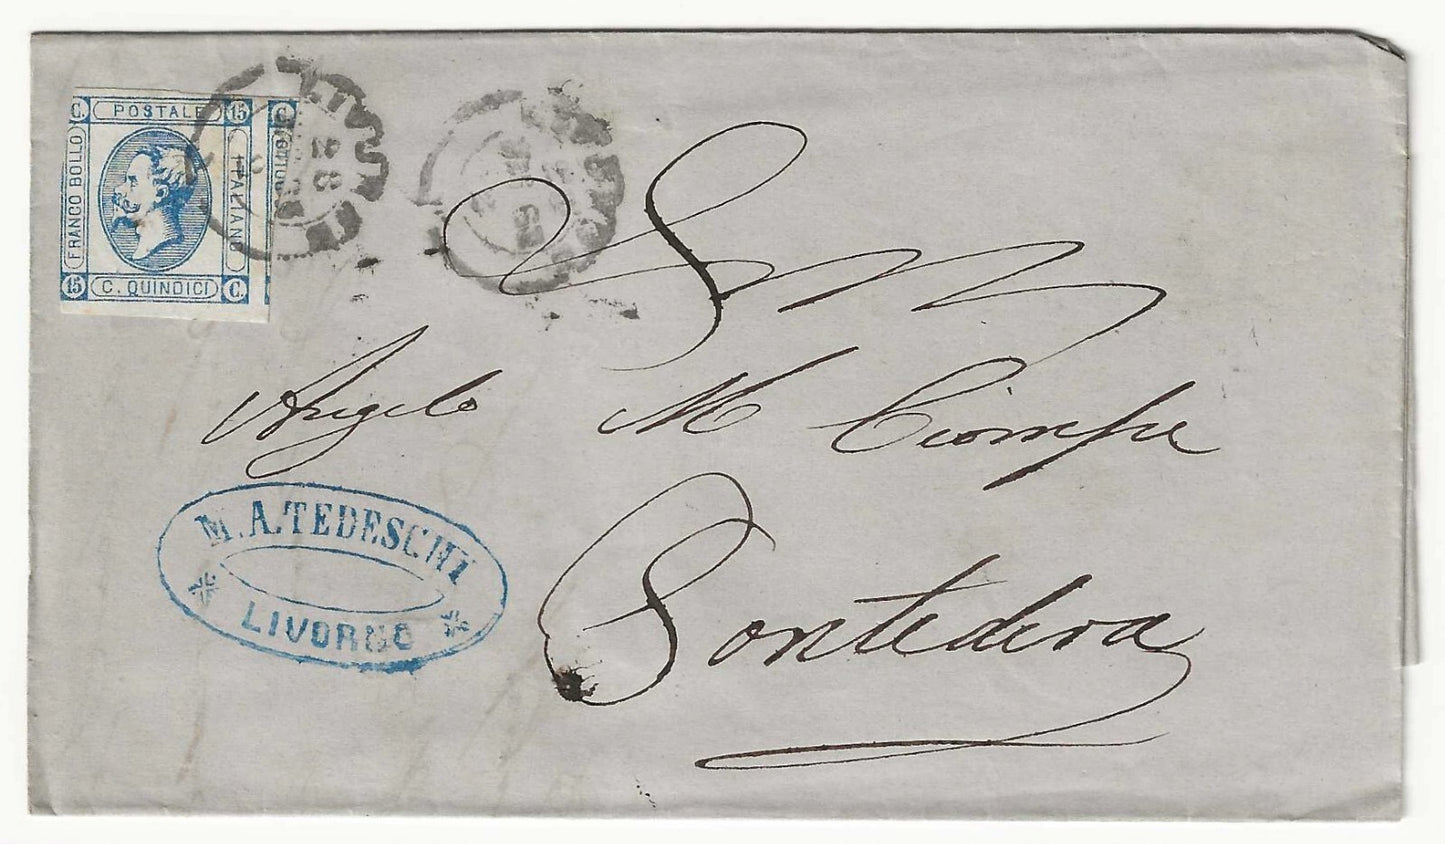 C. POSTALE 15 C.
FRANCO BOLLO
ITALIANO
15 C. QUINDICI C.
LIVORNO
63
Angelo M Ciompi
M. A. TEDESCHI
LIVORNO
Pontedera